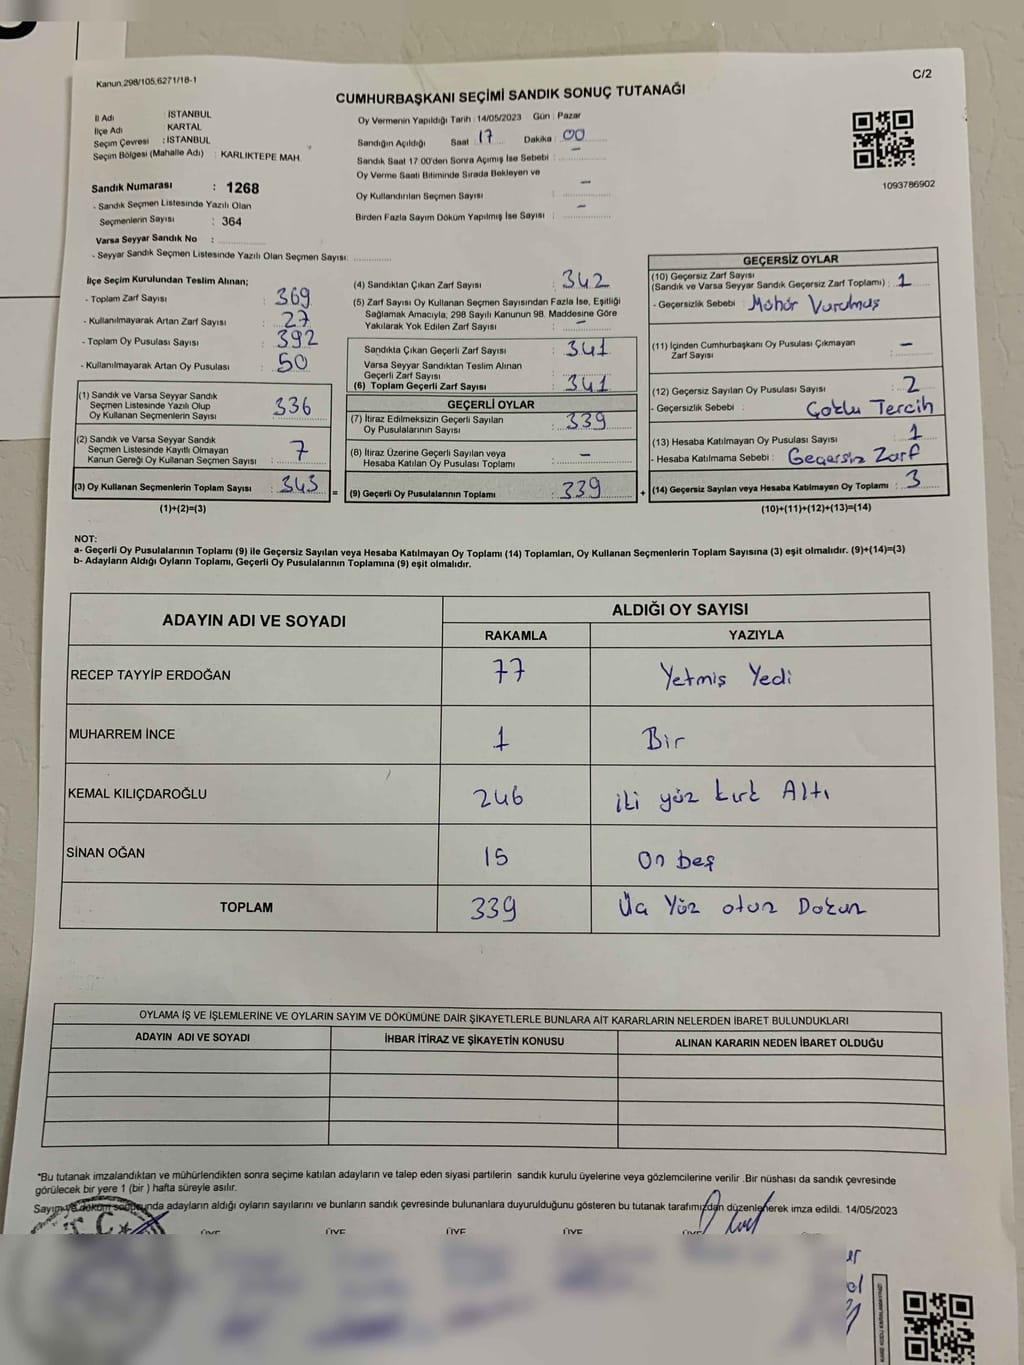 Kanun.298/105,6271/18-1
C/2
CUMHURBAŞKANI SEÇİMİ SANDIK SONUÇ TUTANAĞI
İl Adı : İSTANBUL
İlçe Adı : KARTAL
Seçim Çevresi : İSTANBUL
Seçim Bölgesi (Mahalle Adı) : KARLIKTEPE MAH.
Sandık Numarası : 1268
- Sandık Seçmen Listesinde Yazılı Olan
Seçmenlerin Sayısı : 364
Varsa Seyyar Sandık No :
- Seyyar Sandık Seçmen Listesinde Yazılı Olan Seçmen Sayısı:
Oy Vermenin Yapıldığı Tarih : 14/05/2023 Gün : Pazar
Sandığın Açıldığı Saat 17 Dakika 00
Sandık Saat 17:00'den Sonra Açımış İse Sebebi : -
Oy Verme Saati Bitiminde Sırada Bekleyen ve
Oy Kullandırılan Seçmen Sayısı : -
Birden Fazla Sayım Döküm Yapılmış İse Sayısı : -
1093786902
İlçe Seçim Kurulundan Teslim Alınan;
- Toplam Zarf Sayısı : 369
- Kullanılmayarak Artan Zarf Sayısı : 27
- Toplam Oy Pusulası Sayısı : 392
- Kullanılmayarak Artan Oy Pusulası : 50
(1) Sandık ve Varsa Seyyar Sandık
Seçmen Listesinde Yazılı Olup
Oy Kullanan Seçmenlerin Sayısı : 336
(2) Sandık ve Varsa Seyyar Sandık
Seçmen Listesinde Kayıtlı Olmayan
Kanun Gereği Oy Kullanan Seçmen Sayısı : 7
(3) Oy Kullanan Seçmenlerin Toplam Sayısı : 343
(1)+(2)=(3)
(4) Sandıktan Çıkan Zarf Sayısı : 342
(5) Zarf Sayısı Oy Kullanan Seçmen Sayısından Fazla İse, Eşitliği
Sağlamak Amacıyla, 298 Sayılı Kanunun 98. Maddesine Göre
Yakılarak Yok Edilen Zarf Sayısı : -
Sandıkta Çıkan Geçerli Zarf Sayısı : 341
Varsa Seyyar Sandıktan Teslim Alınan
Geçerli Zarf Sayısı
(6) Toplam Geçerli Zarf Sayısı : 341
GEÇERLİ OYLAR
(7) İtiraz Edilmeksizin Geçerli Sayılan
Oy Pusulalarının Sayısı : 339
(8) İtiraz Üzerine Geçerli Sayılan veya
Hesaba Katılan Oy Pusulası Toplamı : -
= (9) Geçerli Oy Pusulalarının Toplamı : 339 +
GEÇERSİZ OYLAR
(10) Geçersiz Zarf Sayısı
(Sandık ve Varsa Seyyar Sandık Geçersiz Zarf Toplamı) : 1
- Geçersizlik Sebebi : Mühür Vurulmuş
(11) İçinden Cumhurbaşkanı Oy Pusulası Çıkmayan
Zarf Sayısı : -
(12) Geçersiz Sayılan Oy Pusulası Sayısı : 2
- Geçersizlik Sebebi : Çoklu Tercih
(13) Hesaba Katılmayan Oy Pusulası Sayısı : 1
- Hesaba Katılmama Sebebi : Geçersiz Zarf
(14) Geçersiz Sayılan veya Hesaba Katılmayan Oy Toplamı : 3
(10)+(11)+(12)+(13)=(14)
NOT:
a- Geçerli Oy Pusulalarının Toplamı (9) ile Geçersiz Sayılan veya Hesaba Katılmayan Oy Toplamı (14) Toplamları, Oy Kullanan Seçmenlerin Toplam Sayısına (3) eşit olmalıdır. (9)+(14)=(3)
b- Adayların Aldığı Oyların Toplamı, Geçerli Oy Pusulalarının Toplamına (9) eşit olmalıdır.
ADAYIN ADI VE SOYADI
ALDIĞI OY SAYISI
RAKAMLA YAZIYLA
RECEP TAYYİP ERDOĞAN 77 Yetmiş Yedi
MUHARREM İNCE 1 Bir
KEMAL KILIÇDAROĞLU 246 iki yüz kırk Altı
SİNAN OĞAN 15 On beş
TOPLAM 339 Üç Yüz otuz Dokuz
OYLAMA İŞ VE İŞLEMLERİNE VE OYLARIN SAYIM VE DÖKÜMÜNE DAİR ŞİKAYETLERLE BUNLARA AİT KARARLARIN NELERDEN İBARET BULUNDUKLARI
ADAYIN ADI VE SOYADI İHBAR İTİRAZ VE ŞİKAYETİN KONUSU ALINAN KARARIN NEDEN İBARET OLDUĞU
*Bu tutanak imzalandıktan ve mühürlendikten sonra seçime katılan adayların ve talep eden siyasi partilerin sandık kurulu üyelerine veya gözlemcilerine verilir .Bir nüshası da sandık çevresinde
görülecek bir yere 1 (bir ) hafta süreyle asılır.
Sayım ve döküm sonucunda adayların aldığı oyların sayılarını ve bunların sandık çevresinde bulunanlara duyurulduğunu gösteren bu tutanak tarafımızdan düzenlenerek imza edildi. 14/05/2023
ÜYE ÜYE ÜYE ÜYE ÜYE